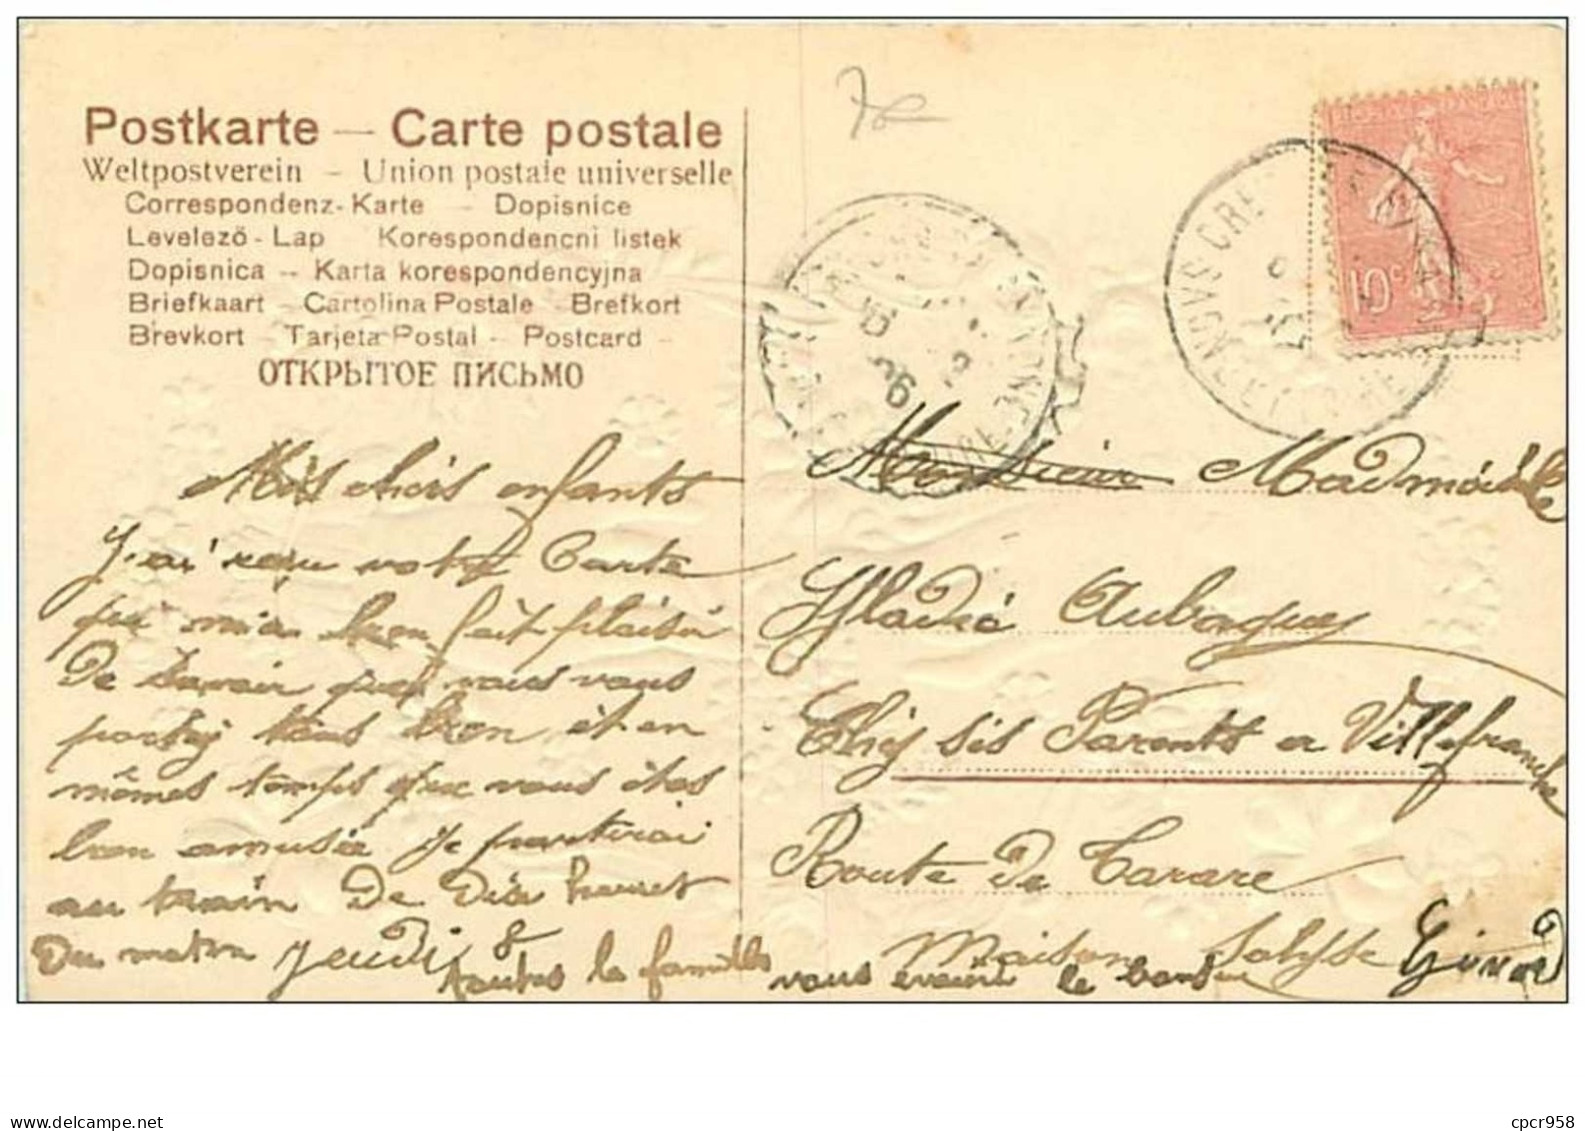 Postkarte — Carte postale
Weltpostverein – Union postale universelle
Correspondenz-Karte – Dopisnice
Levelező-Lap Korespondencni listek
Dopisnica -- Karta korespondencyjna
Briefkaart – Cartolina Postale – Brefkort
Brevkort – Tarjeta Postal – Postcard –
ОТКРЫТОЕ ПИСЬМО
10c
26
Mis chérs enfants
J,ai' reçu votre Carte
qui m'a bon fait plaisir
De savoir que vous vous
portez tous bon et en
mêmes temps que vous êtes
bon amusée je partirai
au train De Dix heures
Du matin jeudi 8
toutes la familles
vous
le
Monsieur Madmoiselle
Aubagues
Chez sis Parents a Villefranche
Route De Tarare
Maison
cpcr958
www.delcampe.net